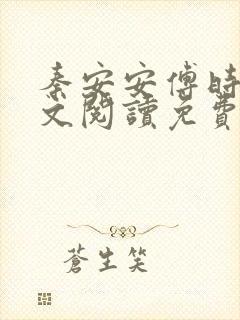 秦安安傅時
文閱讀免費
蒼生笑